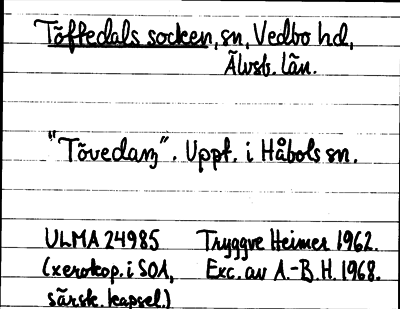 Töftedals socken, sn, Vedbo hd,
Älvsb. län.
"Tövedaɳ". Uppt. i Håbols sn.
ULMA 24985 Tryggve Heimer 1962.
(xerokop. i SOA, Exc. av A.-B. H. 1968.
särsk. kapsel.)